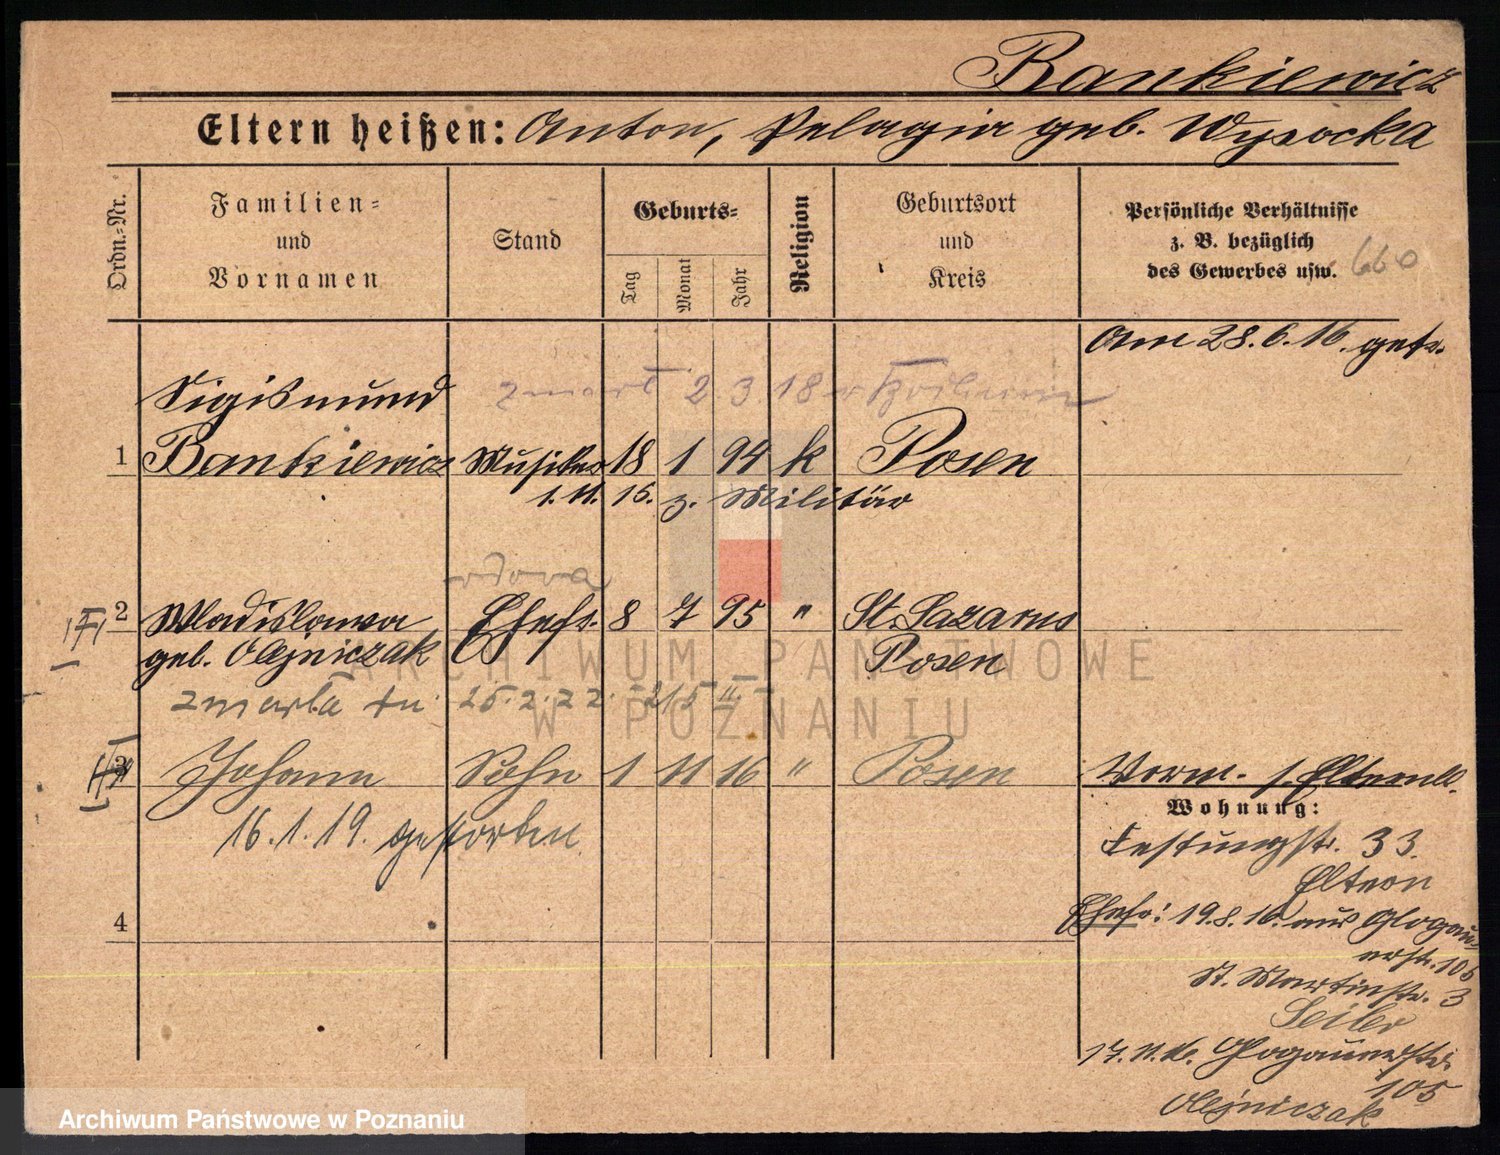 Bankiewicz
Eltern heißen: Anton, Pelagia geb. Wysocka
Ordn.-Nr.
Familien-
und
Vornamen
Stand
Geburts-
Tag
Monat
Jahr
Religion
Geburtsort
und
Kreis
Persönliche Verhältnisse
z. B. bezüglich
des Gewerbes usw. 660
Am 28.6.16. getr.
Sigismund zmarł 2.3.18
1 Bankiewicz Musiker 18 1 94 k Posen
1.11.15. z. Militär
wdowa
2 Wladislawa Ehefr. 8 7 95 " St. Lazarus
geb. Olejniczak Posen
zmarła tu 25.2.22. 215 II
3 Johann Sohn 1 11 16 " Posen
Vorm. s. Elternbl.
16.1.19. gestorben
Wohnung:
Festungstr. 33.
Eltern
4
Ehefr: 19.8.16. aus Glogau-
erstr. 105
St. Martinstr. 3
Seiler
17.11.16. Glogauerstr.
105
Olejniczak
ARCHIWUM PAŃSTWOWE
W POZNANIU
Archiwum Państwowe w Poznaniu